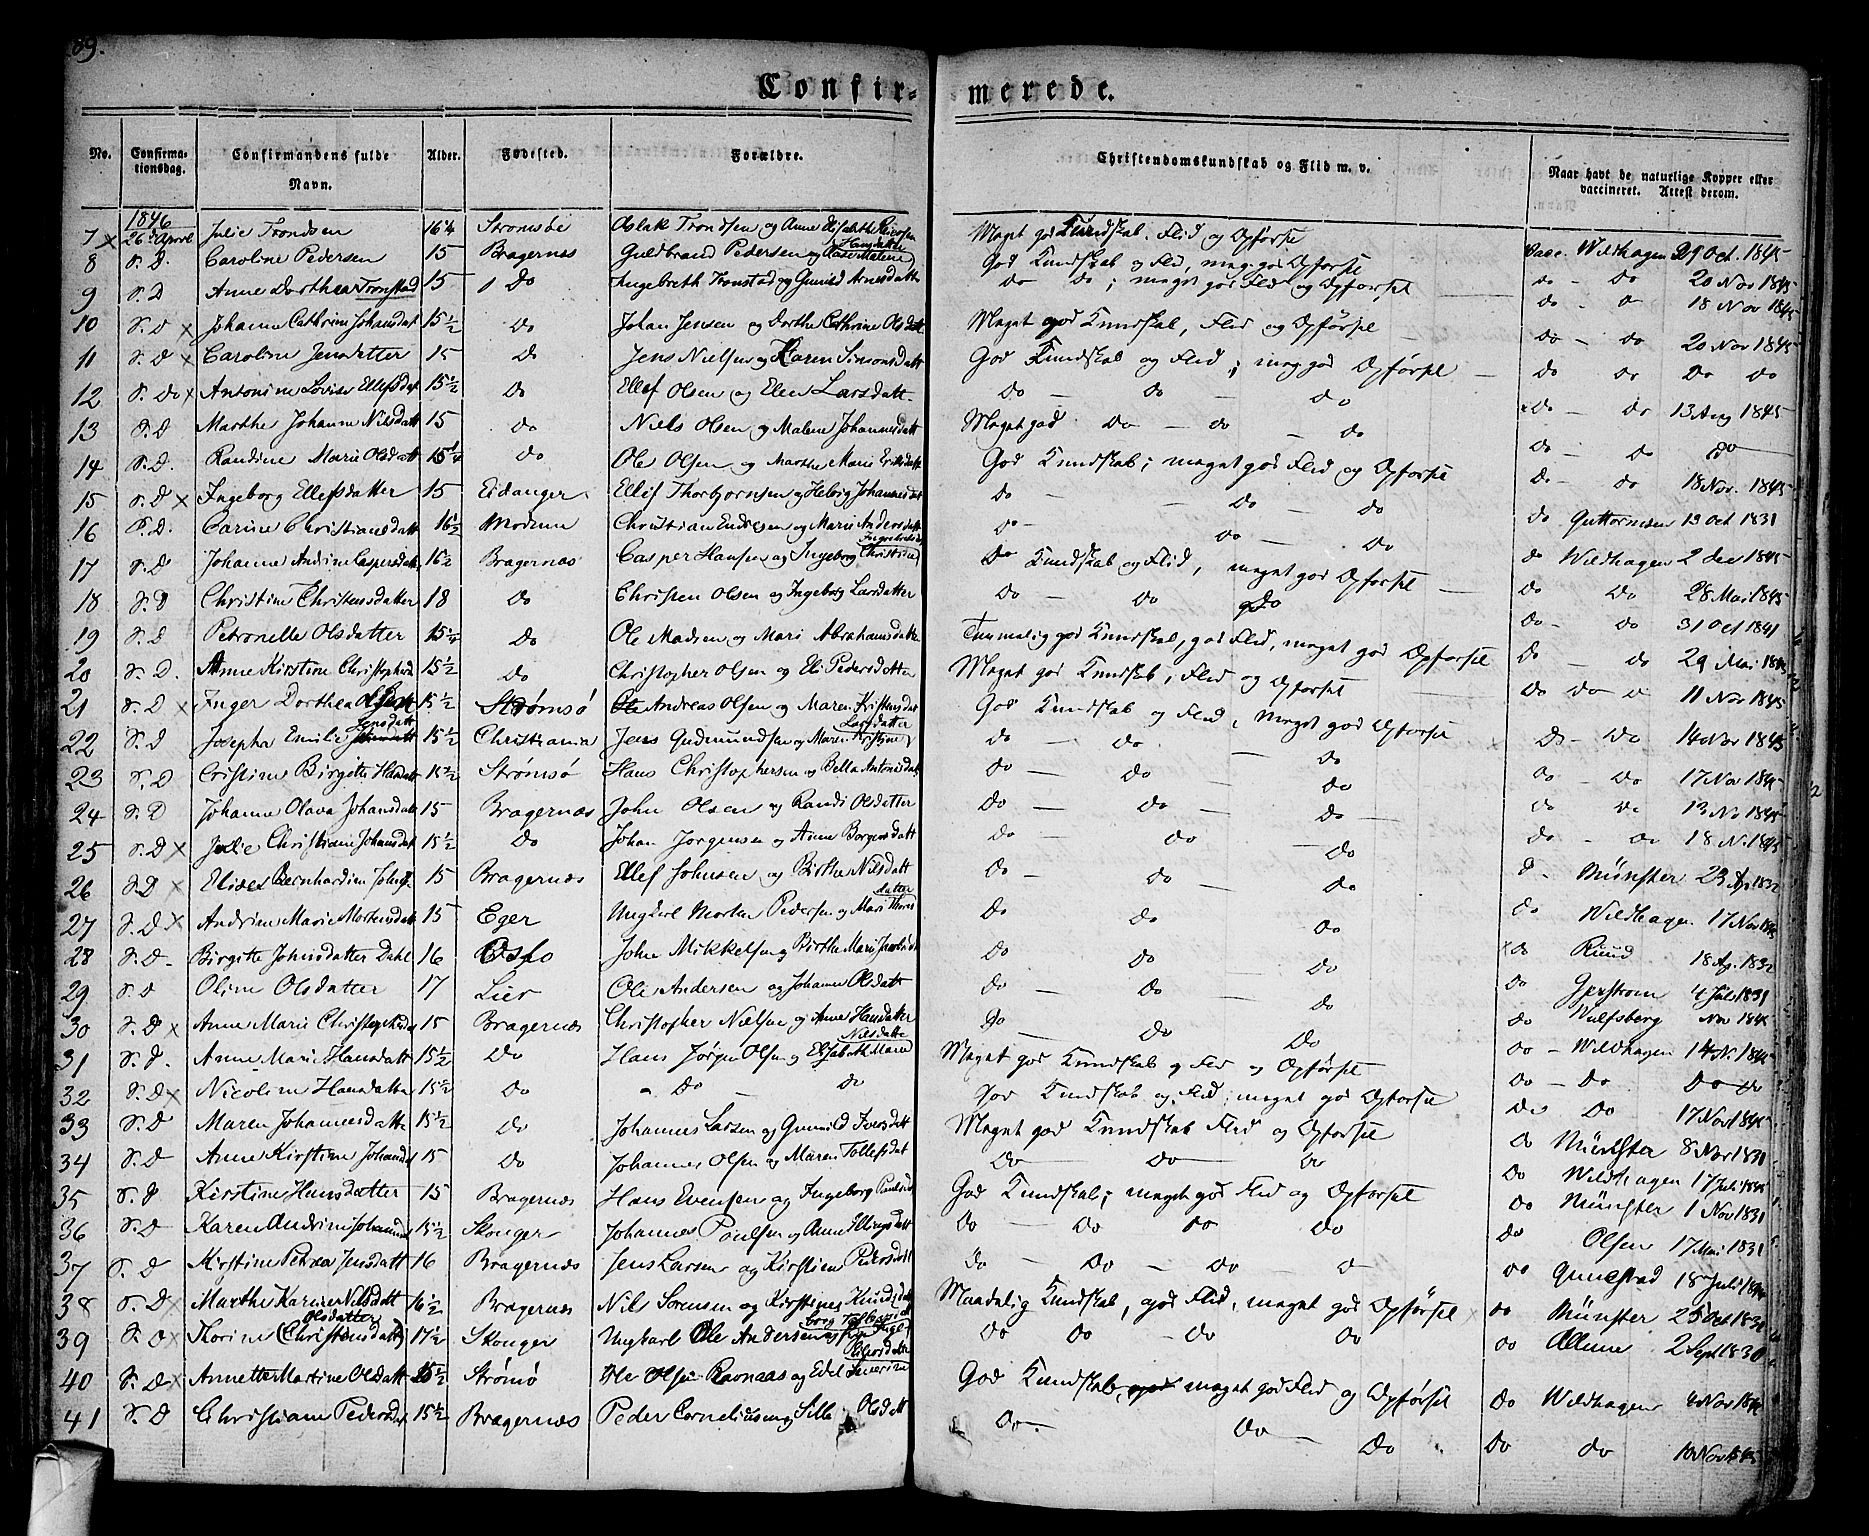 89.
Confirmerede.
No. Confirmationsdag. Confirmandens fulde Navn. Alder. Fødested. Forældre. Christendomskundskab og Flid m. v. Naar havt de naturlige Kopper eller vaccineret. Attest derom.
1846
7 x 26de April Julie Trondsen 16¼ Strømsöe Aslak Trondsen og Anne Elisabethe Meget god Kundskab, Flid og Opförse Vacc. Wildhagen 29 Oct. 1845
8 S. D. Caroline Pedersen 15 Bragernæs Guldbrand Pedersen og Karen Malene Hansdatter God Kundskab og Flid, meg. god Opförsel do - do 20 Nov 1845
9 S. D Anne Dorthea Tronstad 15 Do Ingebreth Tronstad og Gunild Arnesdatter do do; meget god Flid og Opförsel do - do 18 Nov 1845
10 S. D x Johanne Cathrine Johansdat 15½ Do Johan Jensen og Dorthe Cathrine Olsdatt Meget god Kundskab, Flid og Opförsel do - do 20 Nov 1845
11 S. D x Caroline Jensdatter 15 Do Jens Nielsen og Karen Simonsdatt God Kundskab og Flid; meg. god Opförsel do do Do do
12 S. Do x Antonine Lovise Ellefsdat 15½ Do Ellef Olsen og Elen Larsdatt do - do - do Do - do 13 Aug 1845
13 S. D Marthe Johanne Nilsdatt 15 do Niels Olsen og Malene Johannesdatt Meget god do - do - do do - do do
14 S. D. Randine Marie Olsdatt 15¼ do Ole Olsen og Marthe Marie Eriksdatt God Kundskab; meget god Flid og Opförsel Do - do 18 Nov. 1845
15 S. D x Ingeborg Ellefsdatter 15 Eidanger Ellef Thorbjornsen og Helvig Johannesdat do - do - do do Guttormsen 19 Oct 1831
16 S. D. Carine Christiansdatt 16½ Modum Christian Endresen og Marie Andersdatt do - do - do do Wildhagen 2 Dec 1845
17 S. D Johanne Andrine Caspersdatt 16½ Bragernæs Casper Hansen og Ingeborg Christine Do Kundskab og Flid, meget god Opförsel do Do 28 Mai 1845
18 S. D Christine Christensdatter 18 do Christen Olsen og Ingeborg Larsdatter do do do do - do 31 Oct 1841
19 S. D Petronelle Olsdatter 15¼ do Ole Madsen og Mari Abrahamsdatter Temmelig god Kundskab, god Flid, meget god Opförsel do - do 29 Mai
20 S. D. Anne Kirstine Christophersd 15½ do Christopher Olsen og Eli Pedersdatter Meget god Kundskab, Flid og Opförsel do do 11 Nov 1845
21 S. D x Inger Dorthea 15½ Strømsö Andreas Olsen og Maren Kristensdat God Kundskab og Flid, meget god Opförsel Do - Do 14 Nov 1845
22 S. D Josepha Emilie Jensdatt 15½ Christiania Jens Gudmundsen og Maren Kirstine Larsdatter do - do - do do - do 17 Nov 1845
23 S. D Cristine Birgitte Hansdatt 15½ Strømsö Hans Christophersen og Bella Antonisdat do - do do do 13 No 1845
24 S. D Johanne Olava Johansdatt 15 Bragernæs John Olsen og Randi Olsdatter do - do - do do - do 18 N. 1845
25 S. D x Julie Christiane Johansdat 15½ do Johan Jorgensen og Anne Borgersdatt do - do do D. Münster 23 Ap 1832
26 S. D x Elise Bernhardine Johns 15 Bragernæs Ellef Johnsen og Birthe Nilsdatt do - do - do do Wildhagen 17 Nov 1845
27 S. D x Andrine Marie Mortensdatt 15 Eger Ungkarl Morten Pedersen og Mari Thoresdatter do do do do Riund 18 Ap. 1832
28 S. D Birgitte Johnsdatter Dahl 16 Oslo John Mikkelsen og Birthe Marie do do do do 4 Juli 1831
29 S. D Oline Olsdatter 17 Lier Ole Andersen og Johanne Olsdatt do do do do Wulfsberg Nov 1845
30 S. D x Anne Marie Christophersdat 15 Bragernæs Christopher Nielsen og Anne Hansdatter do - do do do - Wildhagen 14 N. 1845
31 S. D. Anne Marie Hansdatt 15½ Do Hans Jørgen Olsen og Elisabeth Maren Nilsdatte Meget god Kundskab og Flid og Opförsel do - Do Do do
32 S. D x Nicoline Hansdatter 15½ Do - Do do God Kundskab og Flid; meget god Opförsel do Do 17 Nov 1845
33 S. D Maren Johannesdatte 15½ Do Johannes Larsen og Gunild Iversdatt Meget god Kundskab Flid og Opförsel Do Münster 8 Nov 1831
34 S. D Anne Kirstine Johansd 15 Do Johannes Olsen og Maren Tollefsdat Do - Do - do Do Wildhagen 17 Juli 1845
35 S. D Kirstine Hansdatter 15 Bragernæs Hans Evensen og Ingeborg Paulsdat God Kundskab; meget god Flid og Opförsel Do Münster 1 Nov 1831
36 S. D Karen Andrine Johannesd 15½ Skouger Johannes Poulsen og Anne Ellingsdatt do - do do Do do Olsen 17 Mai 1831
37 S. D Kirstine Petrea Jensdatt 16 Bragernæs Jens Larsen og Kirstine Pedersdatt do - Do - do - do do Gunestad 18 Juli
38 S. D x Marthe Karine Nilsdatt 16½ Bragernæs Nils Sorensen og Kirstine Knudsdatt Maadelig Kundskab, god Flid, meget god Opförsel x do Münster 25 Oct 1831
39 S. D x Thorine Olsdatter (Christensdatt) 17½ Skouger Ungkarl Ole Andersen og do do - do do do 2 Sept 1830
40 S. D x Annette Martine Olsdatt 15½ Strömsö Ole Olsen Ravnaas og Edel Severine Pedersdatte God Kundskab, meget god Flid og Opförsel Do Wildhagen 4 Nov
41 S. D Christiane Pedersdat 15½ Bragernæs Peder Corneliusen og Sille Olsdatt do - do - Do Do do 10 Nov 1845